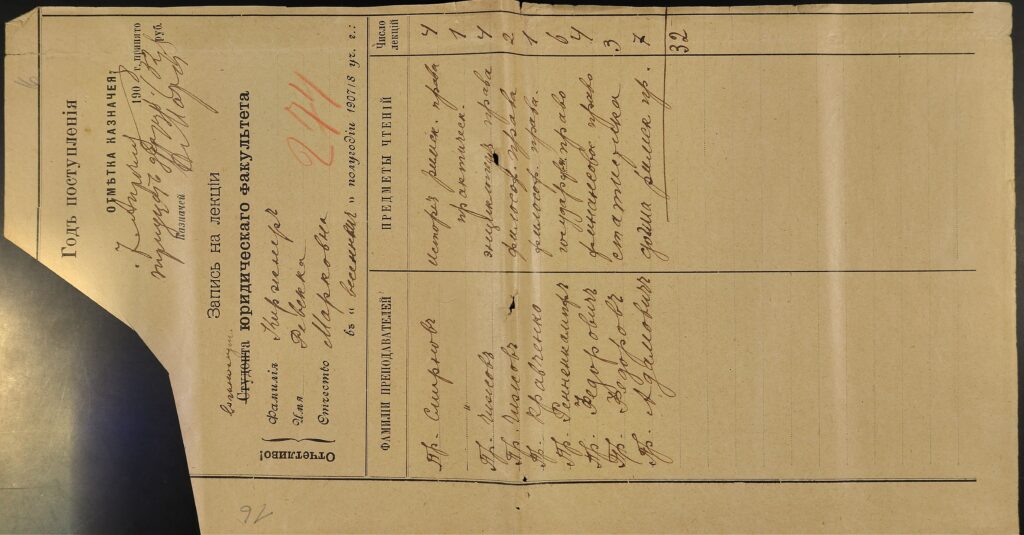 Годъ поступленія
ОТМѢТКА КАЗНАЧЕЯ:
190 г. принято
тридцать руб.
Казначей
Запись на лекціи
Студента юридическаго факультета
Отчетливо!
Фамилія Киржнеръ
Имя Ревекка
Отчество Марковна
274
въ „весеннемъ“ полугодіи 1907/8 уч. г.:
ФАМИЛІИ ПРЕПОДАВАТЕЛЕЙ ПРЕДМЕТЫ ЧТЕНІЙ Число лекцій
Пр. Смирновъ Исторія римск. права 4
" практическ. 1
Пр. Чижовъ энциклопедія права 4
Пр. Чижовъ философ. права 2
Пр. Кравченко философ. права. 1
Пр. Ренненкампфъ государ. право 6
Пр. Федоровичъ финансовое право 4
Пр. Федоровъ статистика 3
Пр. Адамовичъ догма римск. пр. 7
32